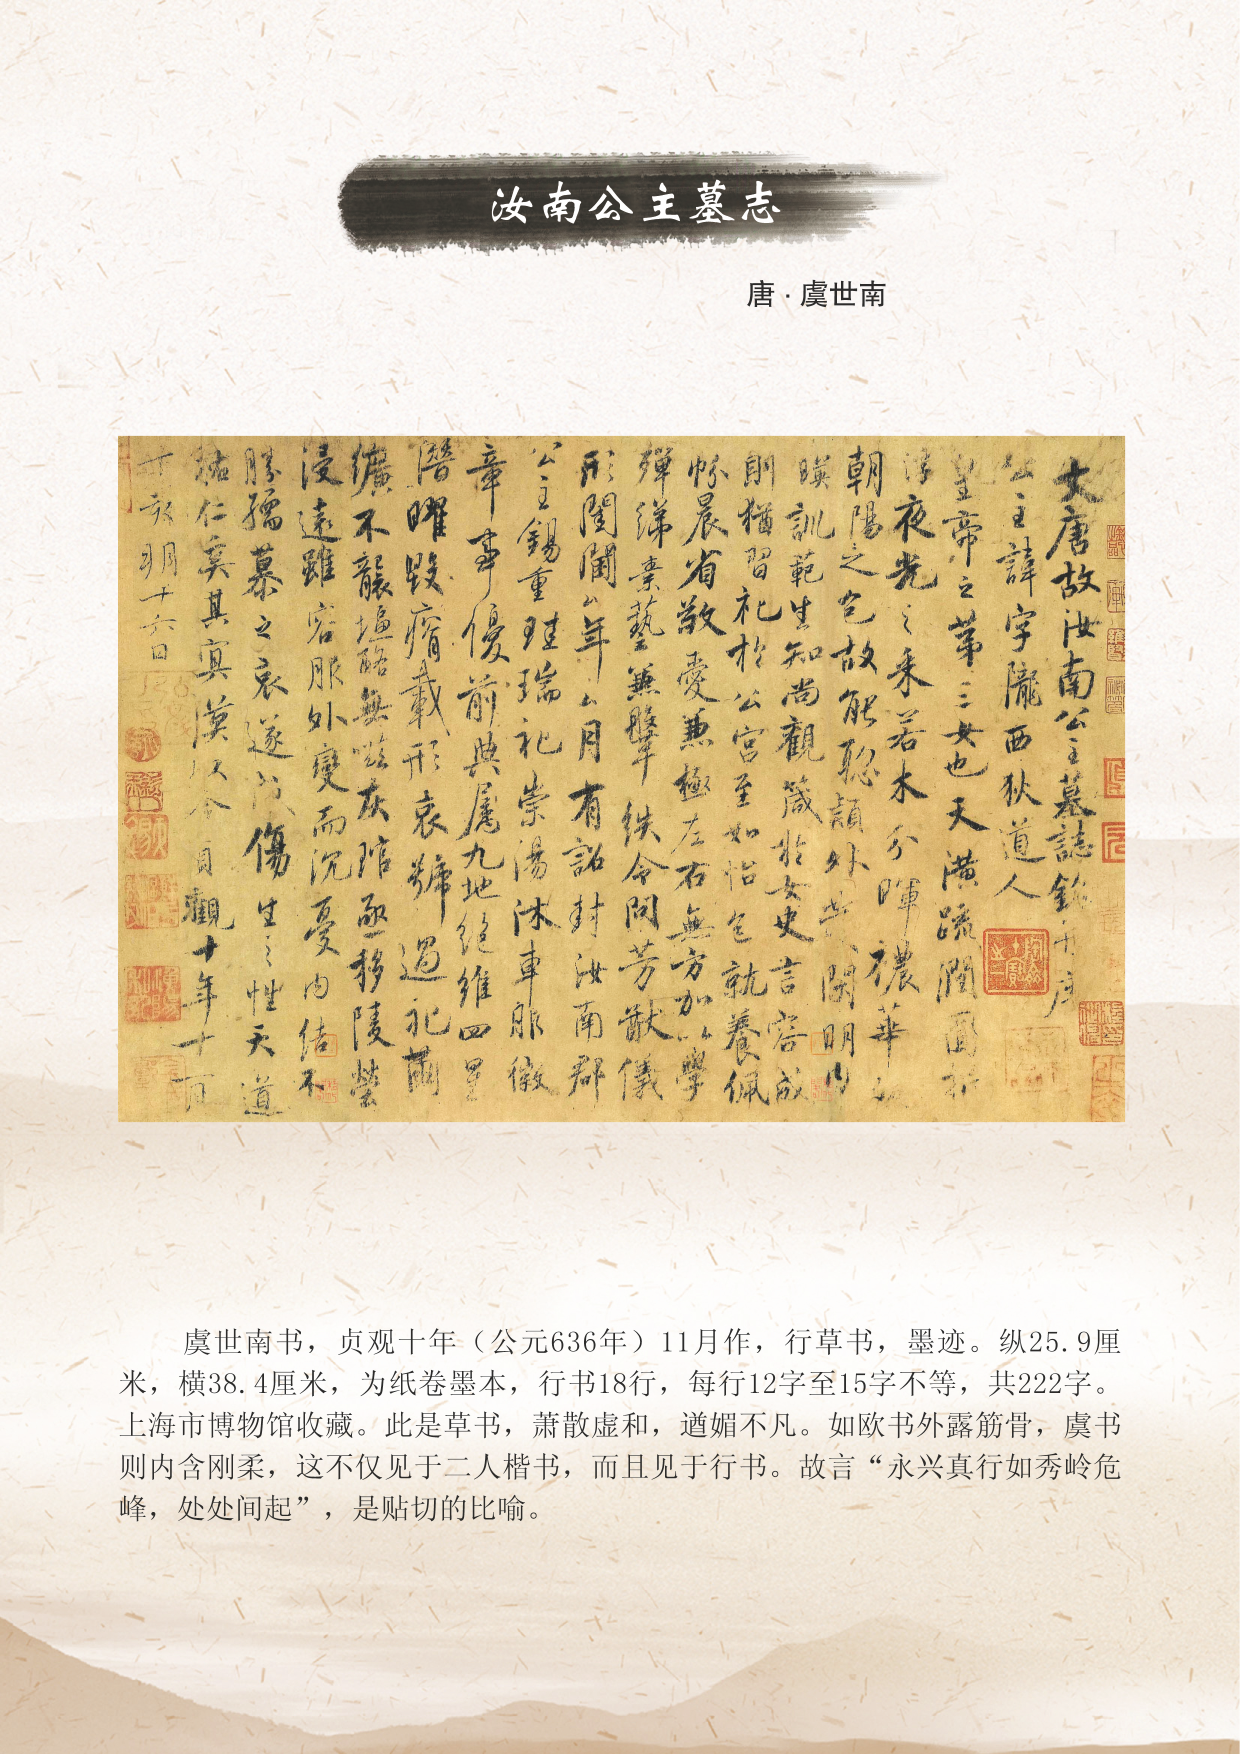 汝南公主墓志
唐·虞世南
大唐故汝南公主墓誌銘并序
公主諱字隴西狄道人
皇帝之第三女也天潢疏潤圓折
浮夜光之采若木分暉穠華
朝陽之色故能聡穎外閑明內
暎訓範生知尚觀箴於女史言容成
則猶習礼於公宮至如怡色就養佩
帉晨省敬愛兼極左右無方加以學
殫綈素藝兼鞶紩令問芳猷儀
形閨閫厶年厶月有詔封汝南郡
公主錫重珪瑞礼崇湯沐車服徽
章事優前典屬九地絕維四星
潛曜毀瘠載形哀號過礼繭
纊不襲塩酪無嗞灰琯亟移陵塋
浸遠雖容服外變而沉憂內結不
勝孺慕之哀遂傷生之性天道
祐仁奚其寞漠以今貞觀十年十一月
丁亥朔十六日
虞世南书，贞观十年（公元636年）11月作，行草书，墨迹。纵25.9厘
米，横38.4厘米，为纸卷墨本，行书18行，每行12字至15字不等，共222字。
上海市博物馆收藏。此是草书，萧散虚和，遒媚不凡。如欧书外露筋骨，虞书
则内含刚柔，这不仅见于二人楷书，而且见于行书。故言“永兴真行如秀岭危
峰，处处间起”，是贴切的比喻。